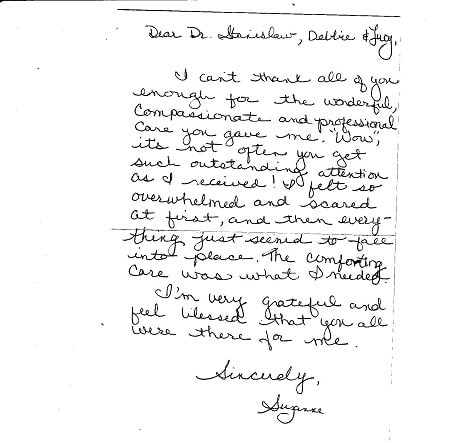 Dear Dr. Stanislaw, Debbie &
I can't thank all of you
enough for the wonderful,
compassionate and professional
care you gave me. "Wow",
it's not often you get
such outstanding attention
as I received! I felt so
overwhelmed and scared
at first, and then every-
thing just seemed to fall
into place. The comforting
care was what I needed.
I'm very grateful and
feel blessed that you all
were there for me.
Sincerely,
Suzanne